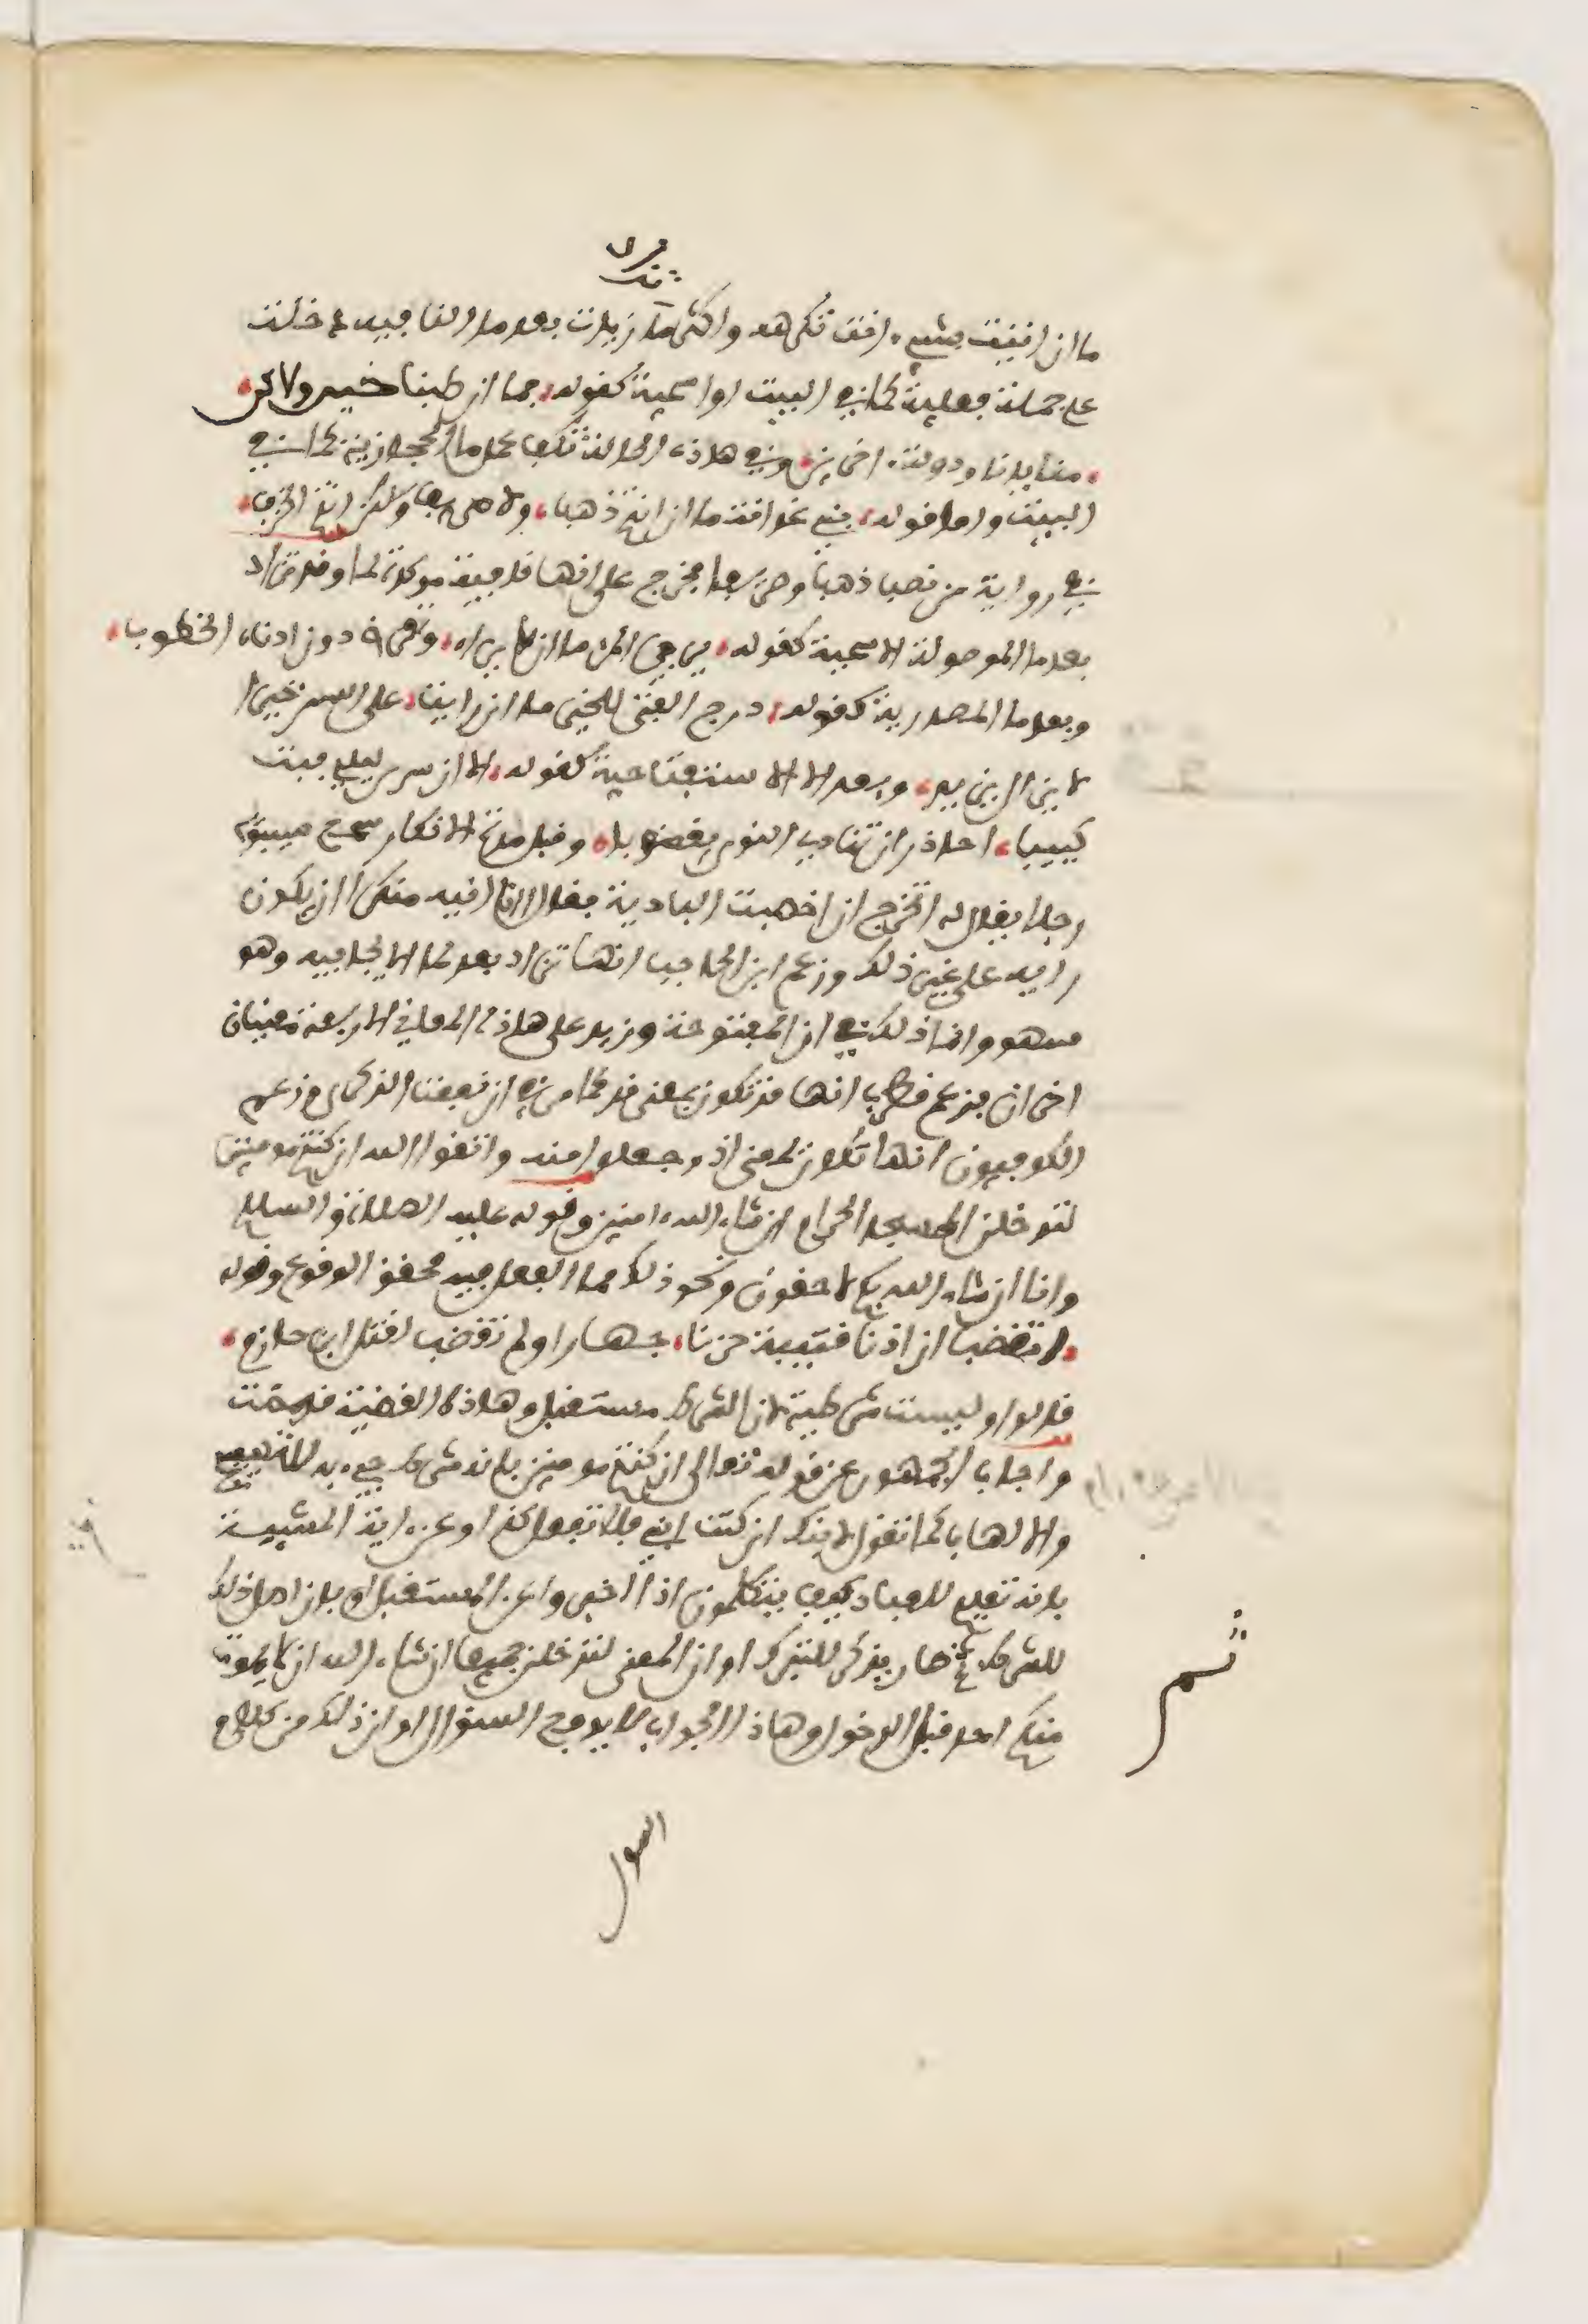 ما ان اتيت بشيء انت تكرهه واكثر ما زيدت بعد ما النافية اذا دخلت
على جملة فعلية كما في البيت او اسمية كقوله فما ان طبنا جبن ولاكن
منايانا ودولة اخرينا وفي هاذه الحالة تكف عمل ما الحجازية كما في
البيت واما قوله بني غدانة ما ان انتم ذهبا ولا صريفا ولكن انتم الخزف
في رواية من نصب ذهبا وصريفا فخرج على انها نافية موكدة لما وقد تزاد
بعد ما الموصولة الاسمية كقوله يرجي المرء ما ان لا يراه وتعرض دون ادناه الخطوب
وبعد ما المصدرية كقوله ورج الفتى للخير ما ان رايته على السن خيرا
لا يزال يزيد وبعد الا الاستفتاحية كقوله الا ان سرى ليلي فبت
كييبا احاذر ان تناى النوى بغضوبا وقبل مدة الانكار سمع سيبويه
رجلا يقال له اتخرج ان اخصبت البادية فقال اانا انيه منكرا ان يكون
رايه على غير ذلك وزعم ابن الحاجب انها تزاد بعد لما الايجابية وهو
سهو وانما ذلك في ان المفتوحة وزيد على هاذه المعاني الاربعة معنيان
اخران فزعم قطرب انها قد تكون بمعنى قد كما مر في ان نفعت الذكرى وزعم
الكوفيون انها تكون بمعنى اذ وجعلوا منه واتقوا الله ان كنتم مومنين
لتدخلن المسجد الحرام ان شاء الله امنين وقوله عليه الصلاة والسلام
وانا ان شاء الله بكم لاحقون ونحو ذلك مما الفعل فيه محقق الوقوع وقوله
اتغضب ان اذنا قتيبة حزتا جهارا ولم تغضب لقتل ابن حازم
قالوا وليست شرطية لان الشرط مستقبل وهاذه القضية قد مضت
واجاب الجمهور عن قوله تعالى ان كنتم مومنين بانه شرط جيء به للتهييج
والالهاب كما تقول لابنك ان كنت ابني فلا تفعل كذا وعن اية المشيئة
بانه تعليم للعباد كيف يتكلمون اذا اخبروا عن المستقبل او بان اصل ذلك
للشرط ثم صار يذكر للتبرك او ان المعنى لتدخلن جميعا ان شاء الله ان لا يموت
منكم احد قبل الدخول وهاذا الجواب لا يدفع السؤال او ان ذلك من كلام
ثم